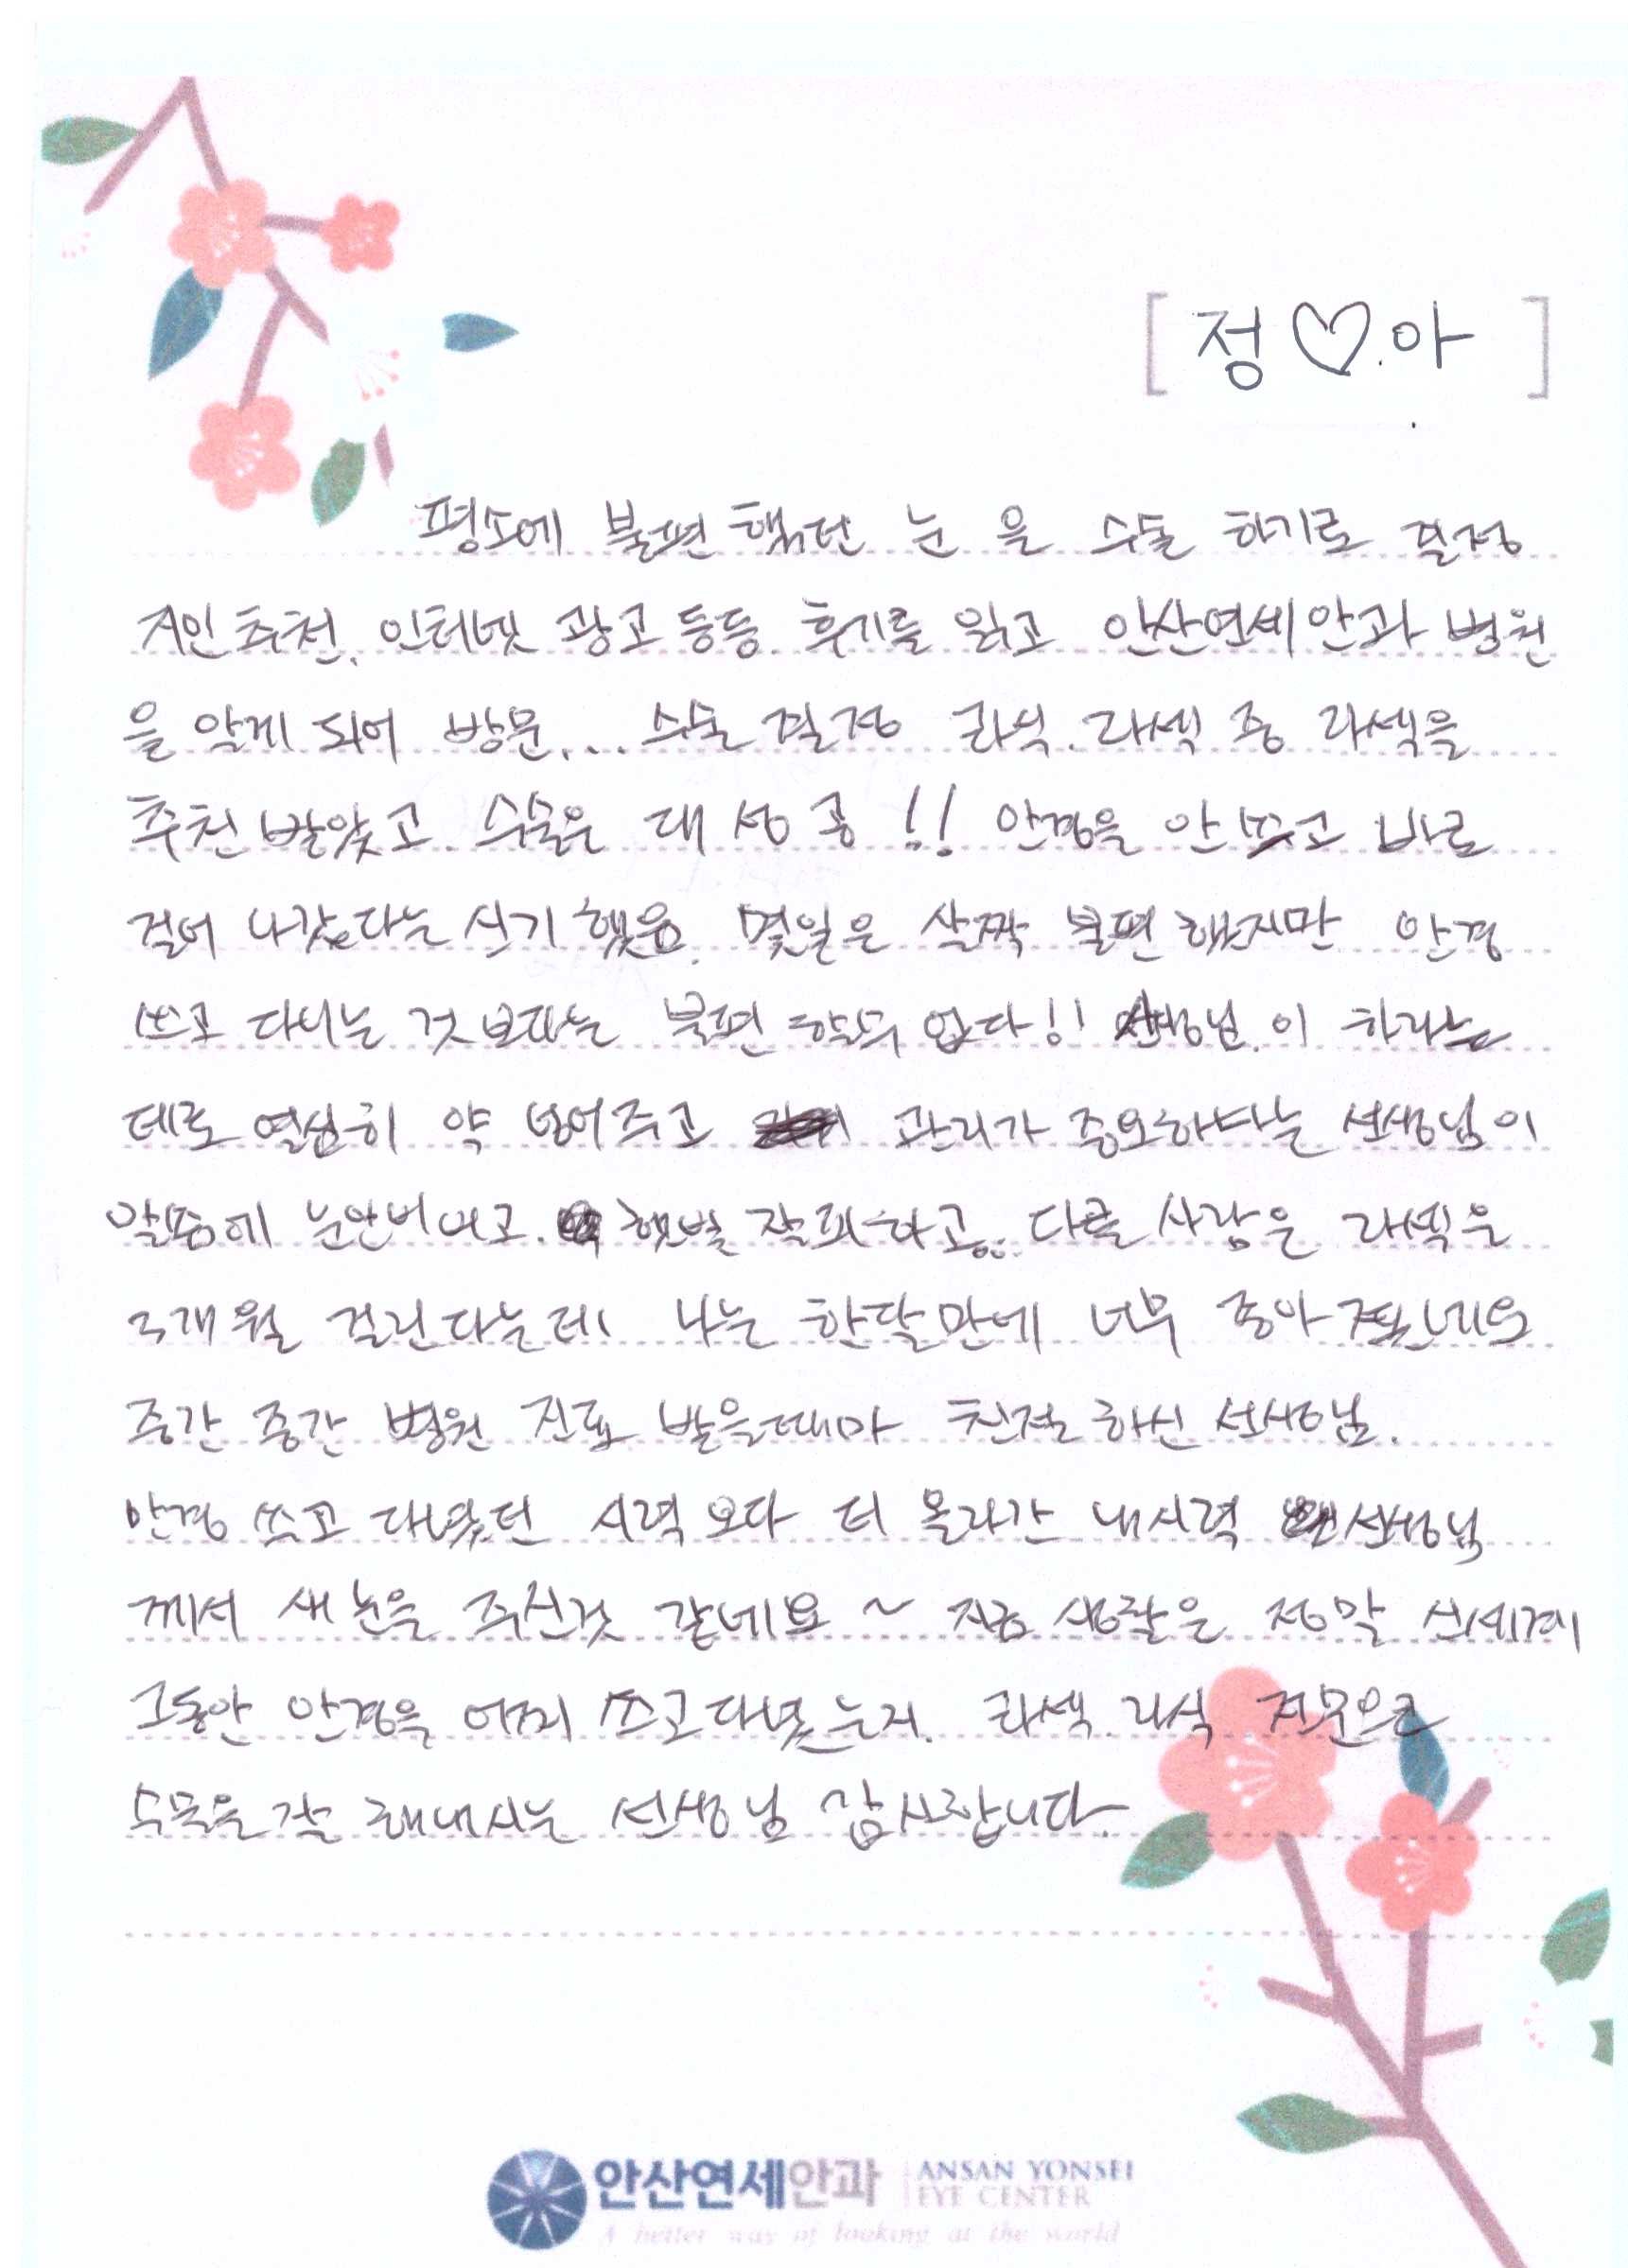 [ 정♡아 ]
평소에 불편했던 눈을 수술 하기로 결정
지인추천, 인터넷 광고 등등 후기를 읽고 안산연세안과 병원
을 알게 되어 방문... 수술 결정 라식. 라섹 중 라섹을
추천 받았고. 수술은 대 성공!! 안경을 안 쓰고 바로
걸어 나갔다는 신기했음. 몇일은 살짝 불편했지만 안경
쓰고 다니는 것 보다는 불편 할수 없다!! 선생님이 하라는
데로 열심히 약 넣어주고 관리가 중요하다는 선생님이
말씀에 눈안비비고. 햇빛 잘피하고.. 다른 사람은 라섹은
3개월 걸린다는데 나는 한달만에 너무 좋아졌네요
중간 중간 병원 진료 받을때마 친절하신 선생님.
안경 쓰고 다녔던 시력 보다 더 올라간 내시력 선생님
께서 새눈을 주신것 같네요 ~ 지금 생활은 정말 신세계
그동안 안경을 어찌 쓰고다녔는지. 라섹. 라식 전문으로
수술을 잘 해내시는 선생님 감사합니다.
안산연세안과 ANSAN YONSEI
EYE CENTER
A better way of looking at the world